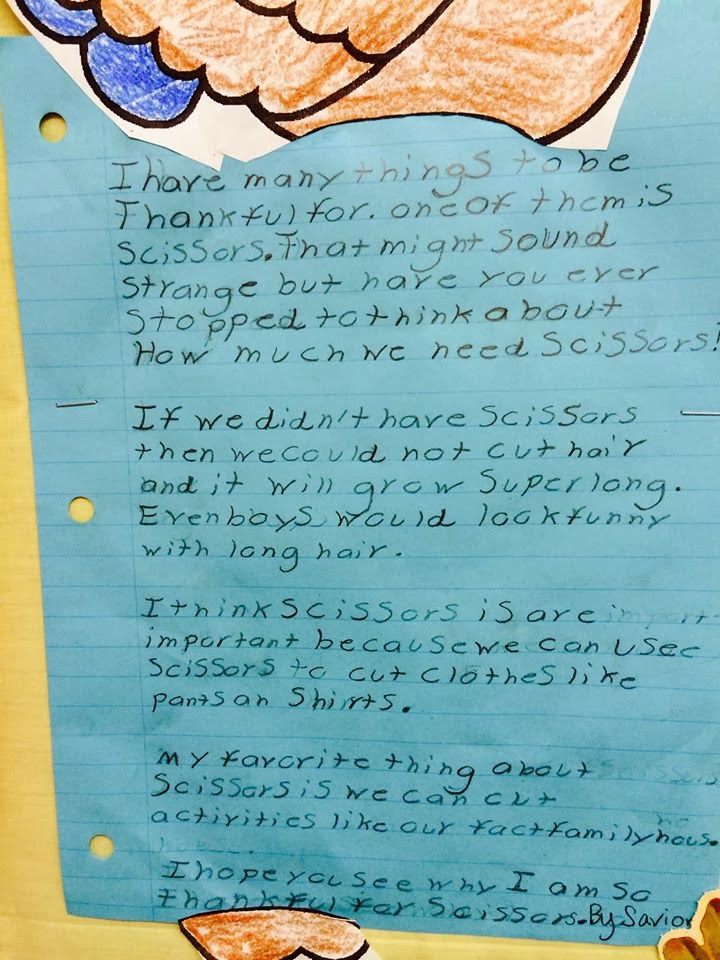 I have many things to be
Thankful for. one of them is
scissors. That might sound
strange but have you ever
stopped to think about
How much we need scissors!
If we didn't have scissors
then we could not cut hair
and it will grow super long.
Even boys would look funny
with long hair.
I think scissors is are import
important because we can use
scissors to cut clothes like
pants an shirts.
my favorite thing about scissors
scissors is we can cut
activities like our fact family hous.
I hope you see why I am so
thankful for scissors. By Savior